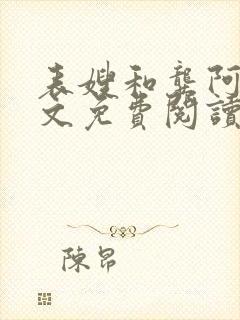 表嫂和龔阿
文免費閱讀
陳昂